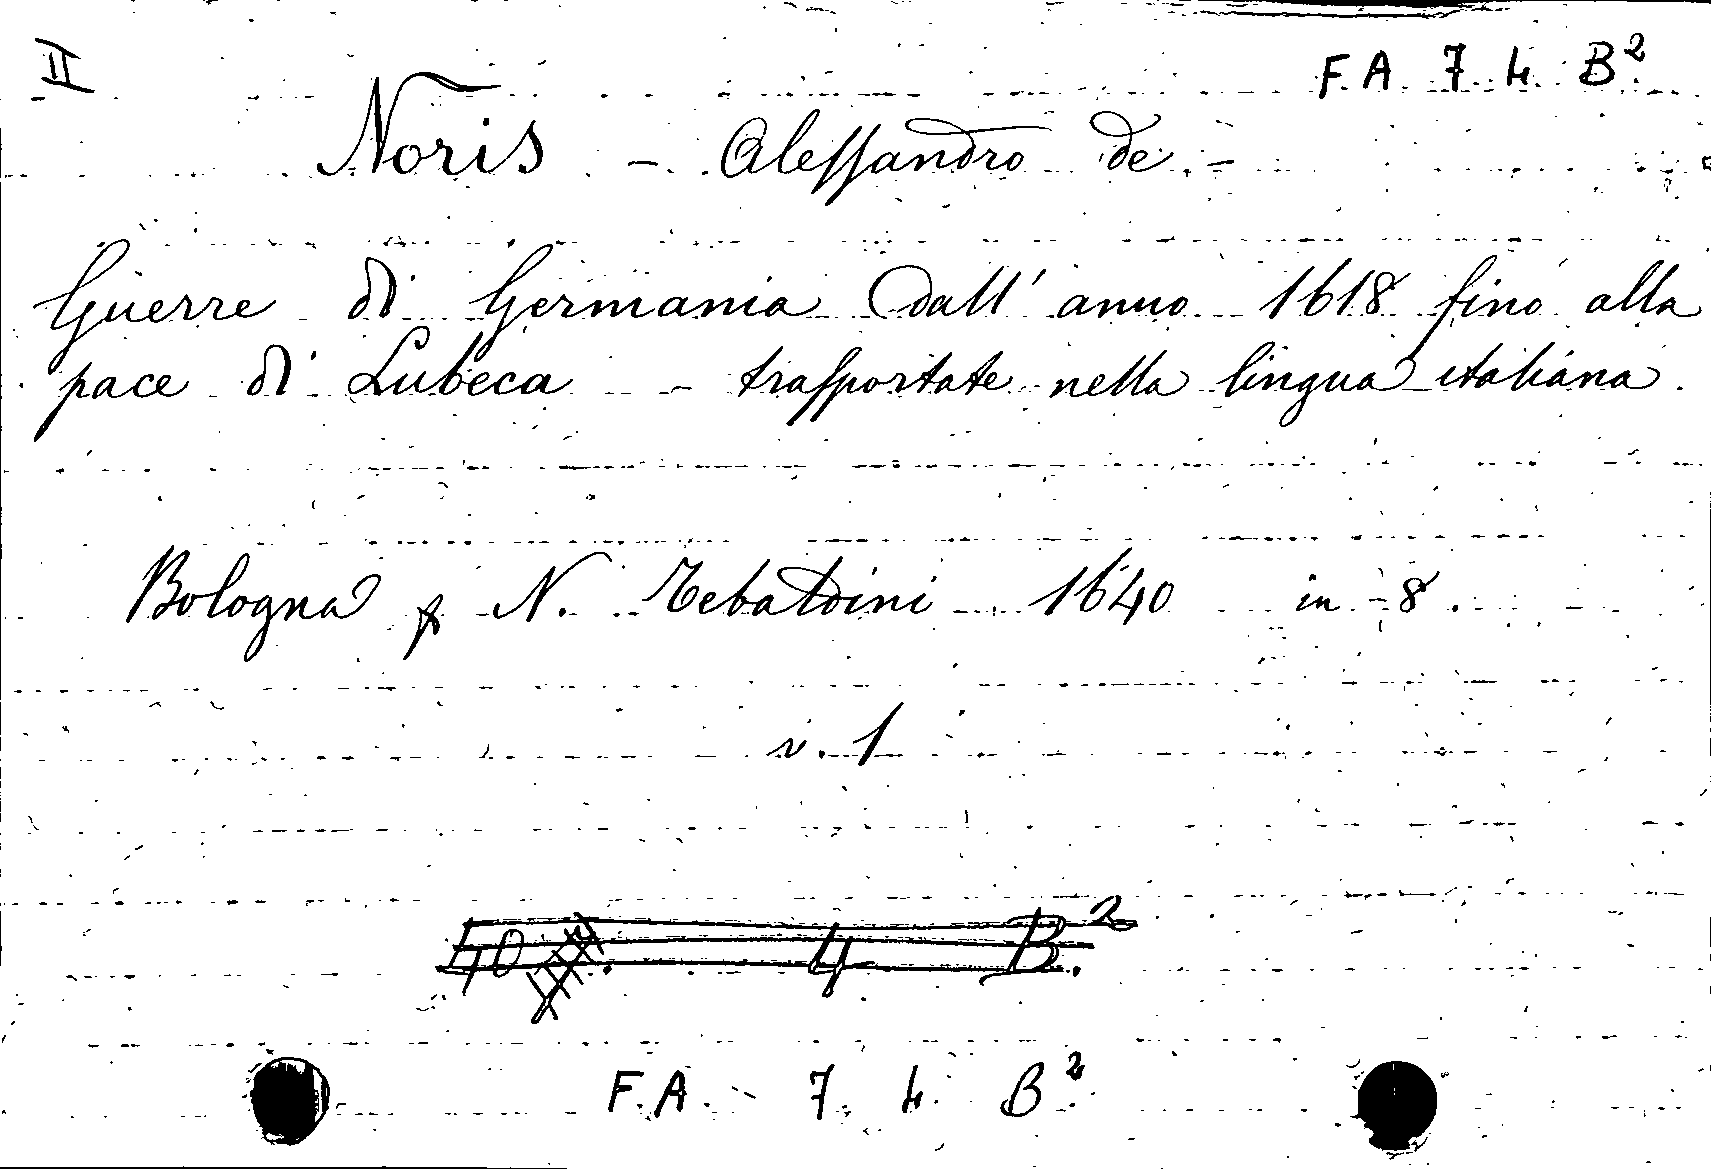 II
F.A. 7. 4. B².
Noris - Alessandro de -
Guerre di Germania dall' anno 1618 fino alla
pace di Lubeca - trasportate nella lingua italiana.
Bologna p N. Tebaldini 1640 in - 8.
v. 1
4 B.²
F.A. - 7. 4. B².